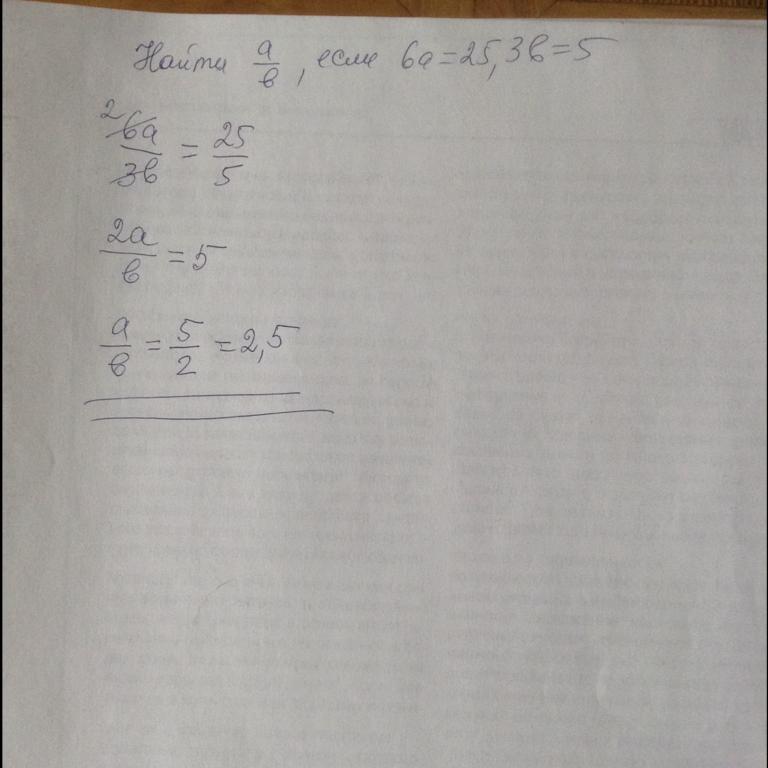 Найти a/в, если 6a=25, 3в=5
2 6a/3в = 25/5
2a/в = 5
a/в = 5/2 = 2,5